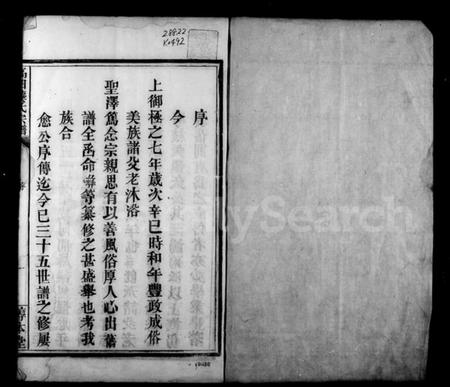 序
今
上御極之七年歲次辛巳時和年豐政成俗
美族諸父老沐浴
聖澤篤念宗親思有以善風俗厚人心出舊
譜全函命 等纂修之甚盛舉也考我
族合
愈公序傳迄今已三十五世譜之修屢
氏宗譜
序
一
堂
28822
K492
MySearch